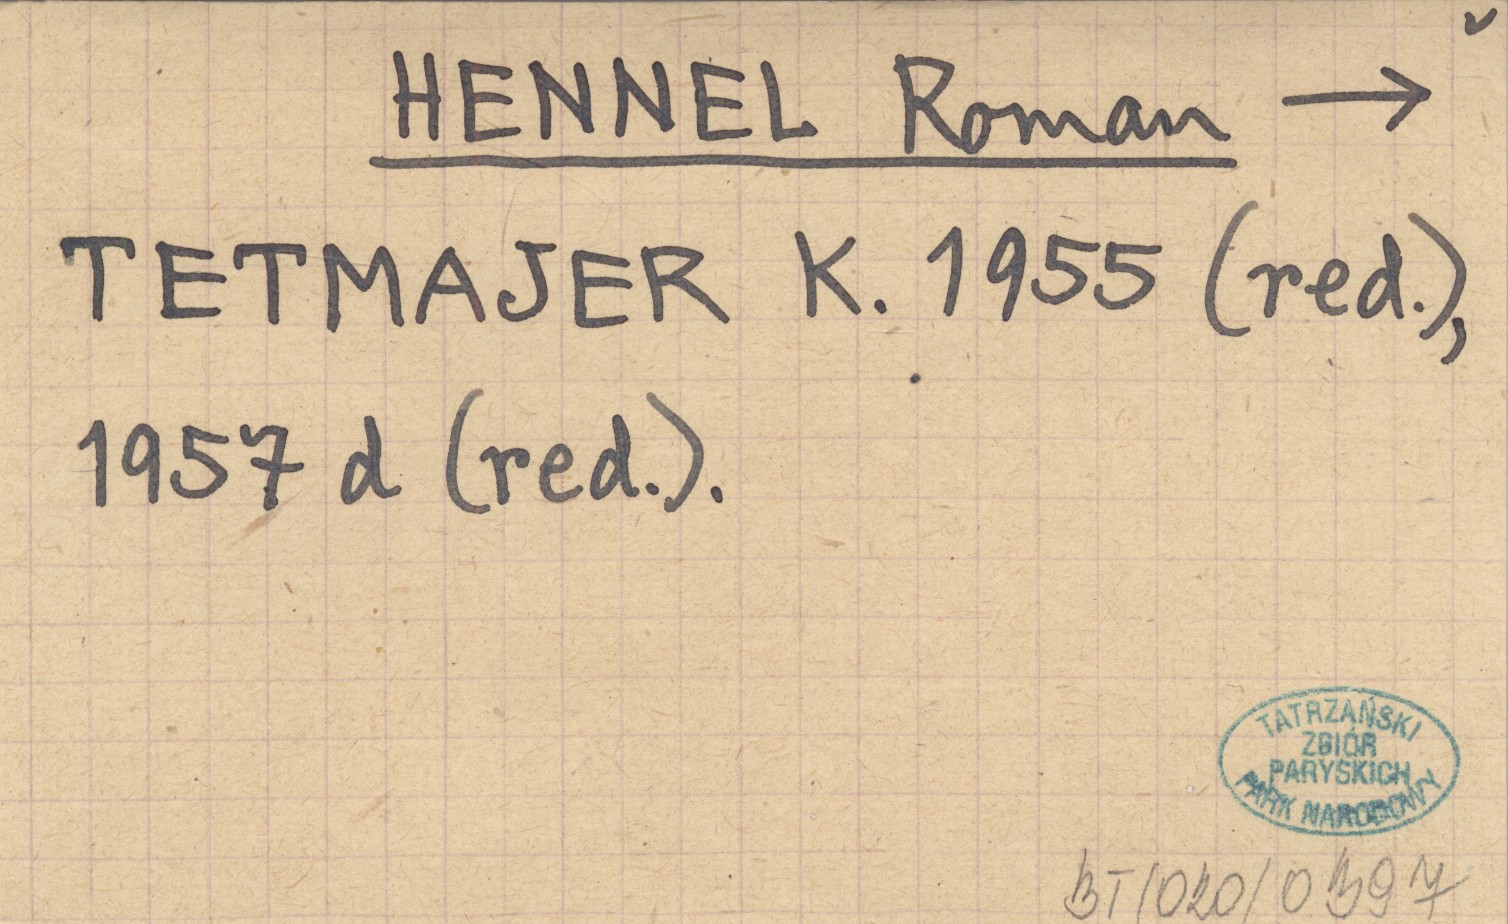 HENNEL Roman →
TETMAJER K. 1955 (red.),
1957 d (red.).
TATRZAŃSKI
ZBIÓR
PARYSKICH
PARK NARODOWY
BT/020/0397